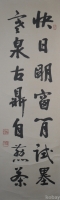 快日明窗闲试墨
寒泉古鼎自煮茶